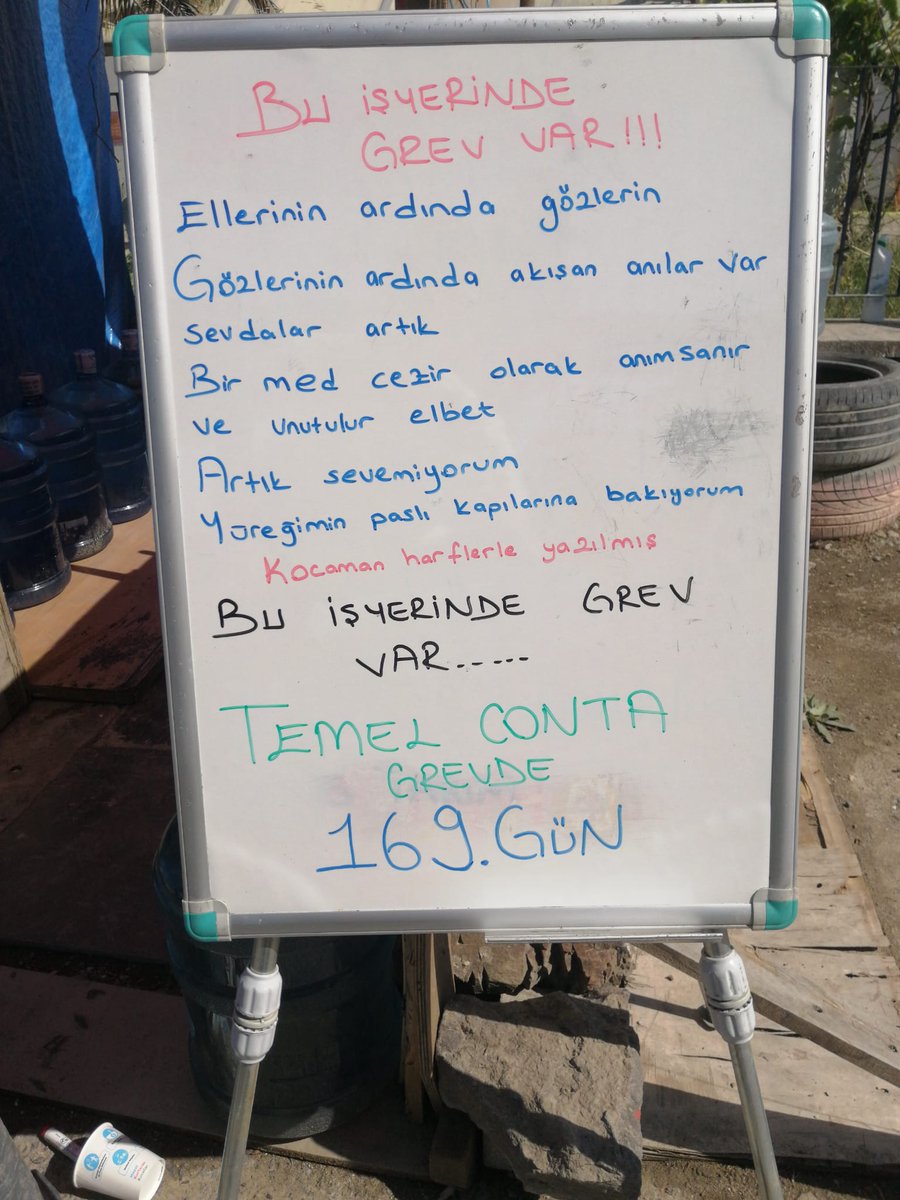 BU İŞYERİNDE
GREV VAR!!!
Ellerinin ardında gözlerin
Gözlerinin ardında akışan anılar var
sevdalar artık
Bir med cezir olarak anımsanır
ve unutulur elbet
Artık sevemiyorum
Yüreğimin paslı kapılarına bakıyorum
Kocaman harflerle yazılmış
BU İŞYERİNDE GREV
VAR......
TEMEL CONTA
GREVDE
169.GÜN